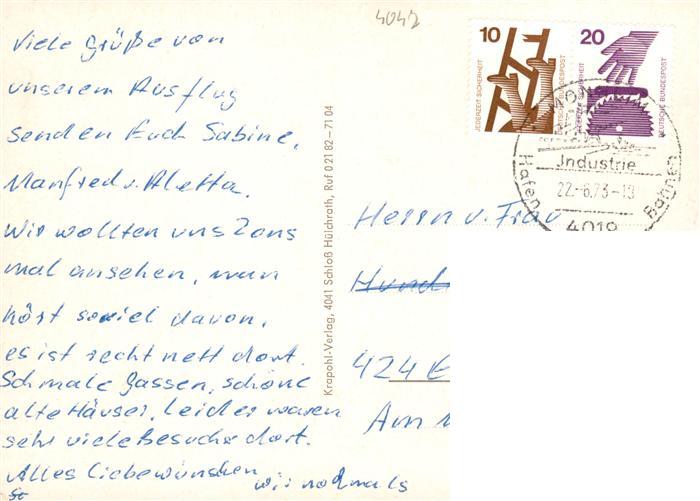 4042
Viele Grüße von
unserem Ausflug
senden Euch Sabine,
Manfred u. Aletta.
Wir wollten uns Zons
mal ansehen, man
hört soviel davon,
es ist recht nett dort.
Schmale Gassen, schöne
alte Häuser, leider waren
sehr viele Besucher dort.
Alles Liebe wünschen
wir nochmals
Krapohl-Verlag, 4041 Schloß Hülchrath, Ruf 0 21 82 – 71 04
10
JEDERZEIT SICHERHEIT
DEUTSCHE BUNDESPOST
20
DEUTSCHE BUNDESPOST
Industrie
Hafen
Bahnen
22.-6.73-19
4019
Herrn u. Frau
424 E
Am